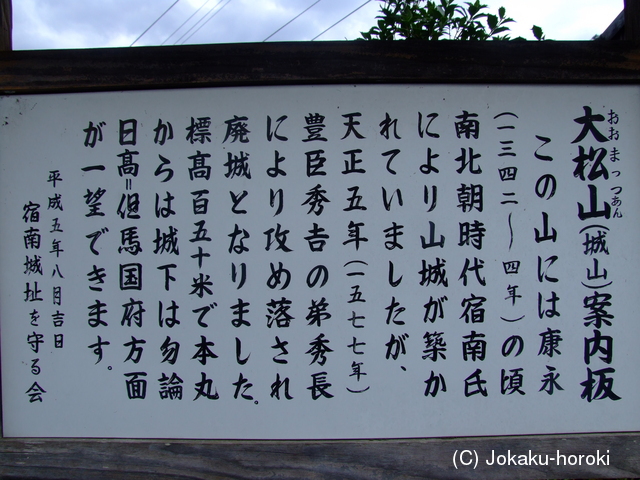 大松山(城山)案内板
おおまっつあん
この山には康永
(一三四二〜四年)の頃
南北朝時代宿南氏
により山城が築か
れていましたが、
天正五年(一五七七年)
豊臣秀吉の弟秀長
により攻め落され
廃城となりました。
標高百五十米で本丸
からは城下は勿論
日高=但馬国府方面
が一望できます。
平成五年八月吉日
宿南城址を守る会
(C) Jokaku-horoki